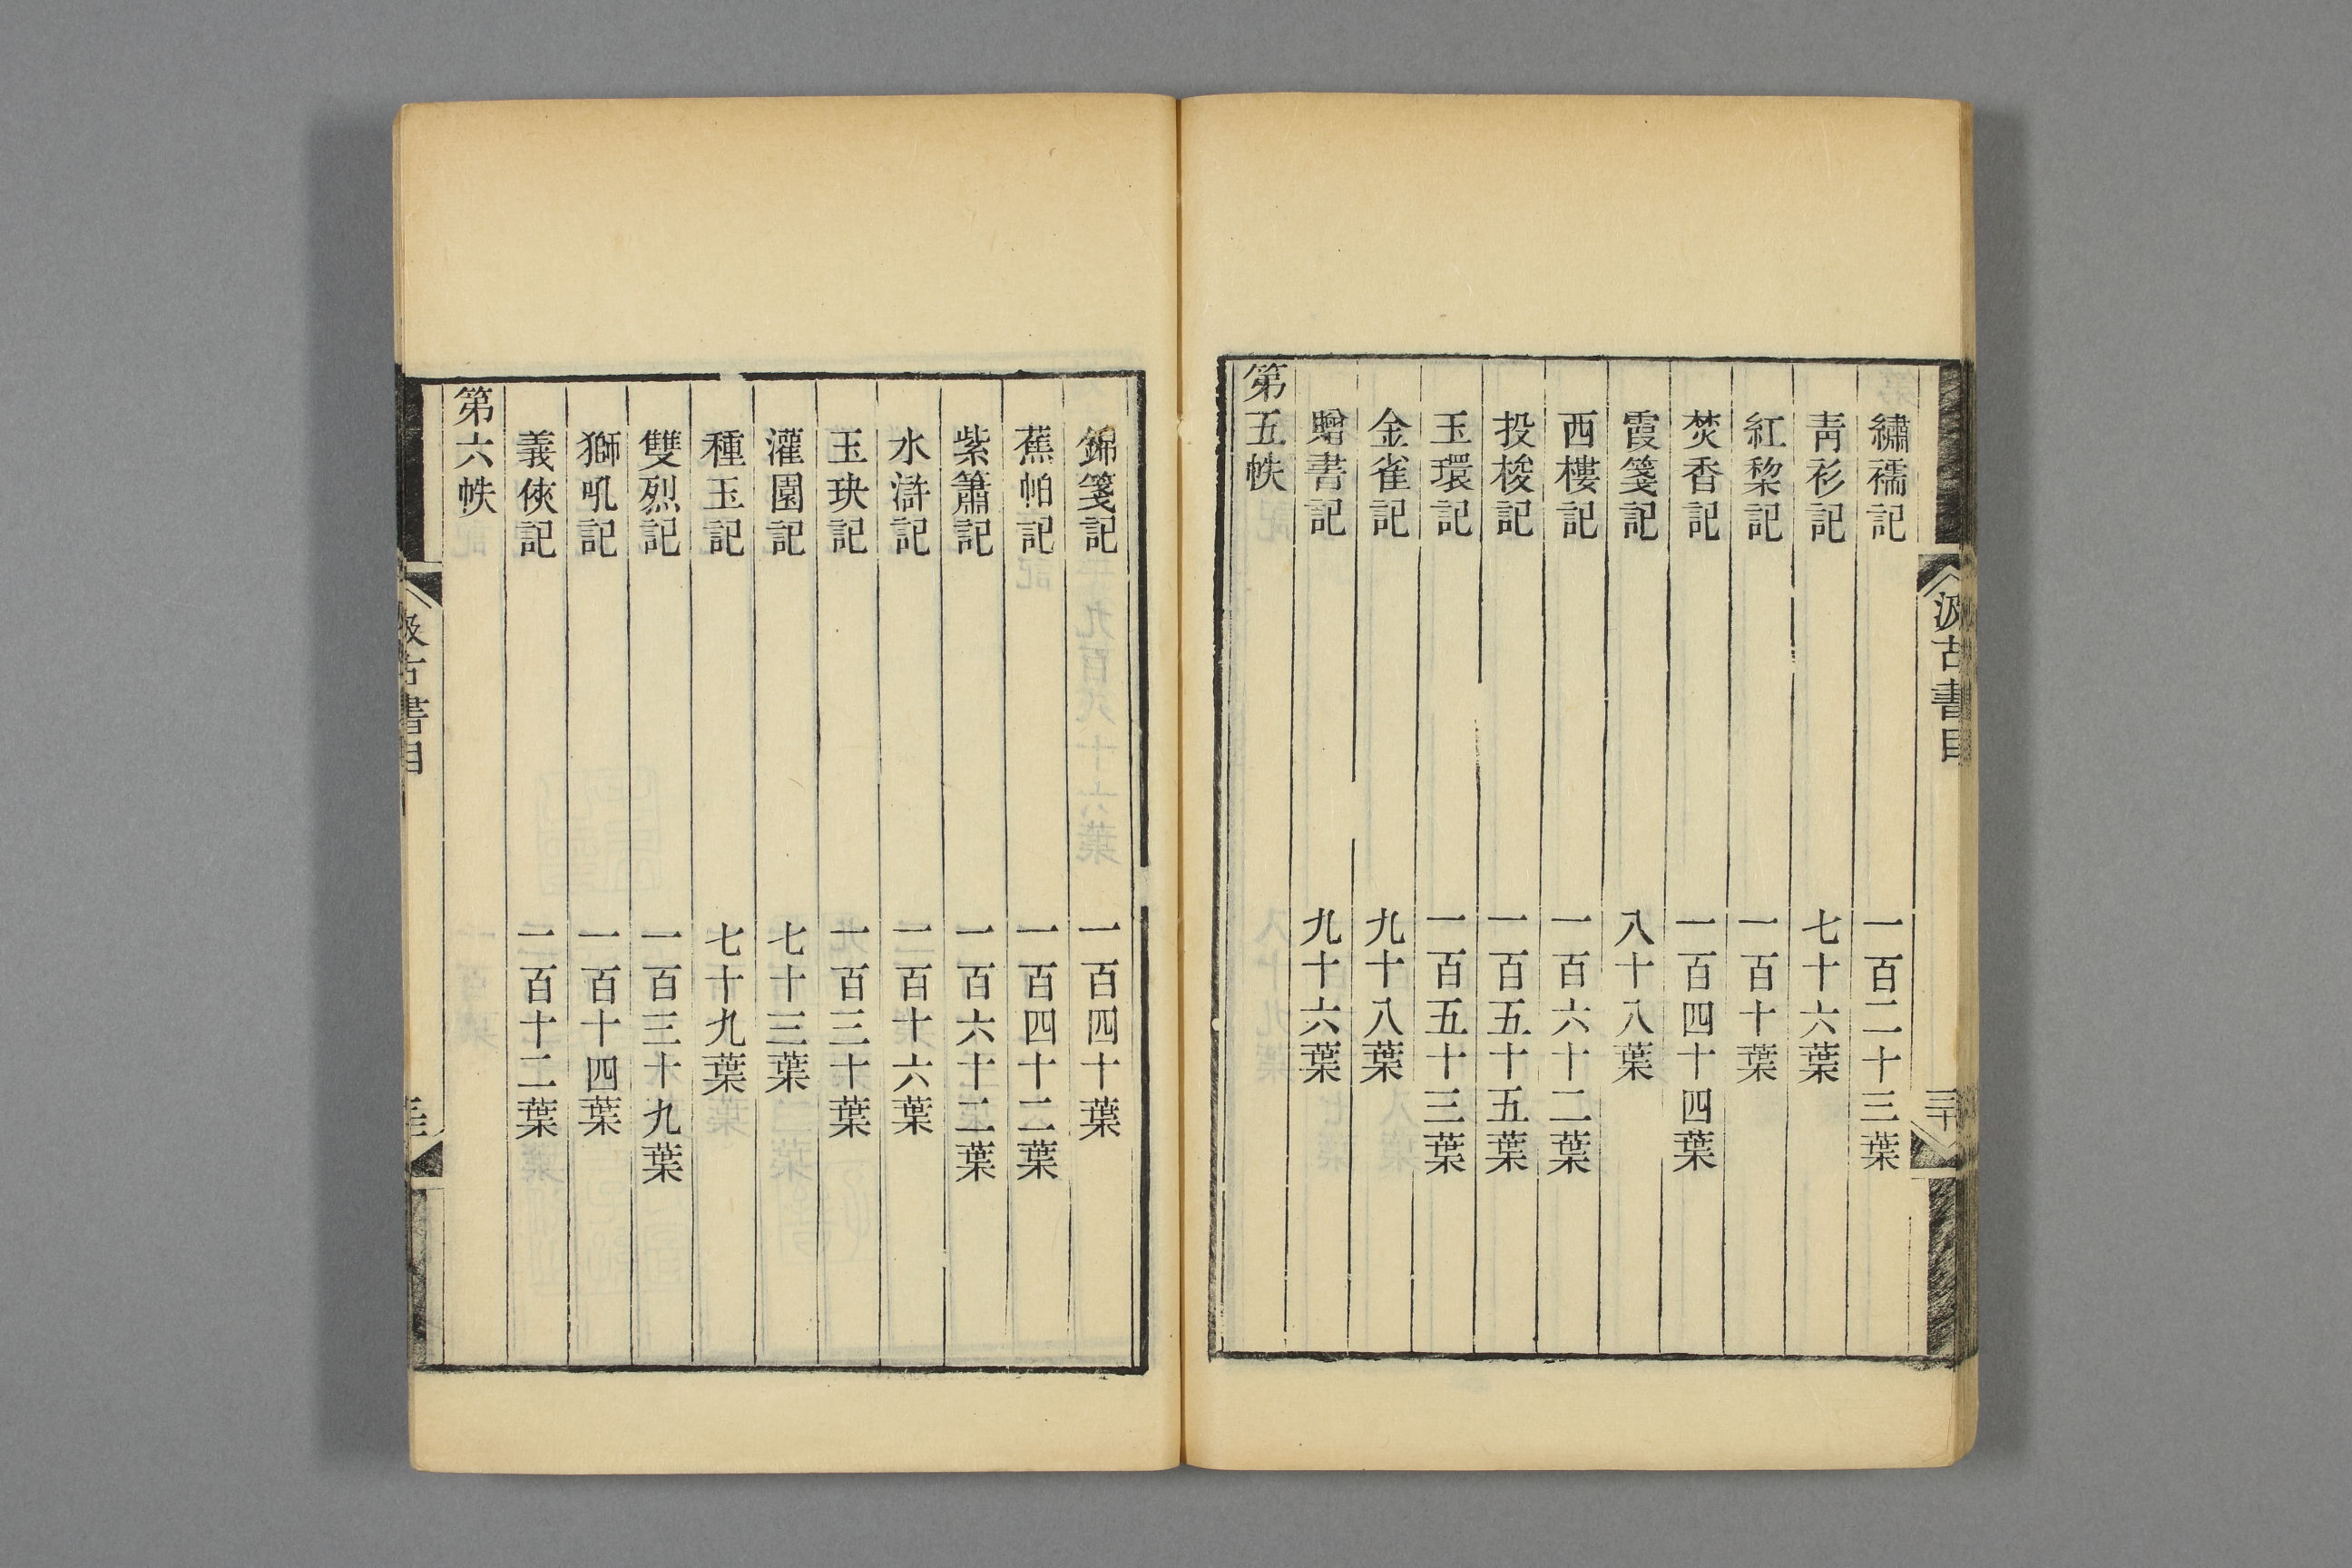 汲古書目 三十
繡襦記 一百二十三葉
靑衫記 七十六葉
紅棃記 一百十葉
焚香記 一百四十四葉
霞箋記 八十八葉
西樓記 一百六十二葉
投梭記 一百五十五葉
玉環記 一百五十三葉
金雀記 九十八葉
贈書記 九十六葉
第五帙
錦箋記 一百四十葉
蕉帕記 一百四十二葉
紫簫記 一百六十二葉
水滸記 一百十六葉
玉玦記 一百三十葉
灌園記 七十三葉
種玉記 七十九葉
雙烈記 一百三十九葉
獅吼記 一百十四葉
義俠記 一百十二葉
第六帙
汲古書目